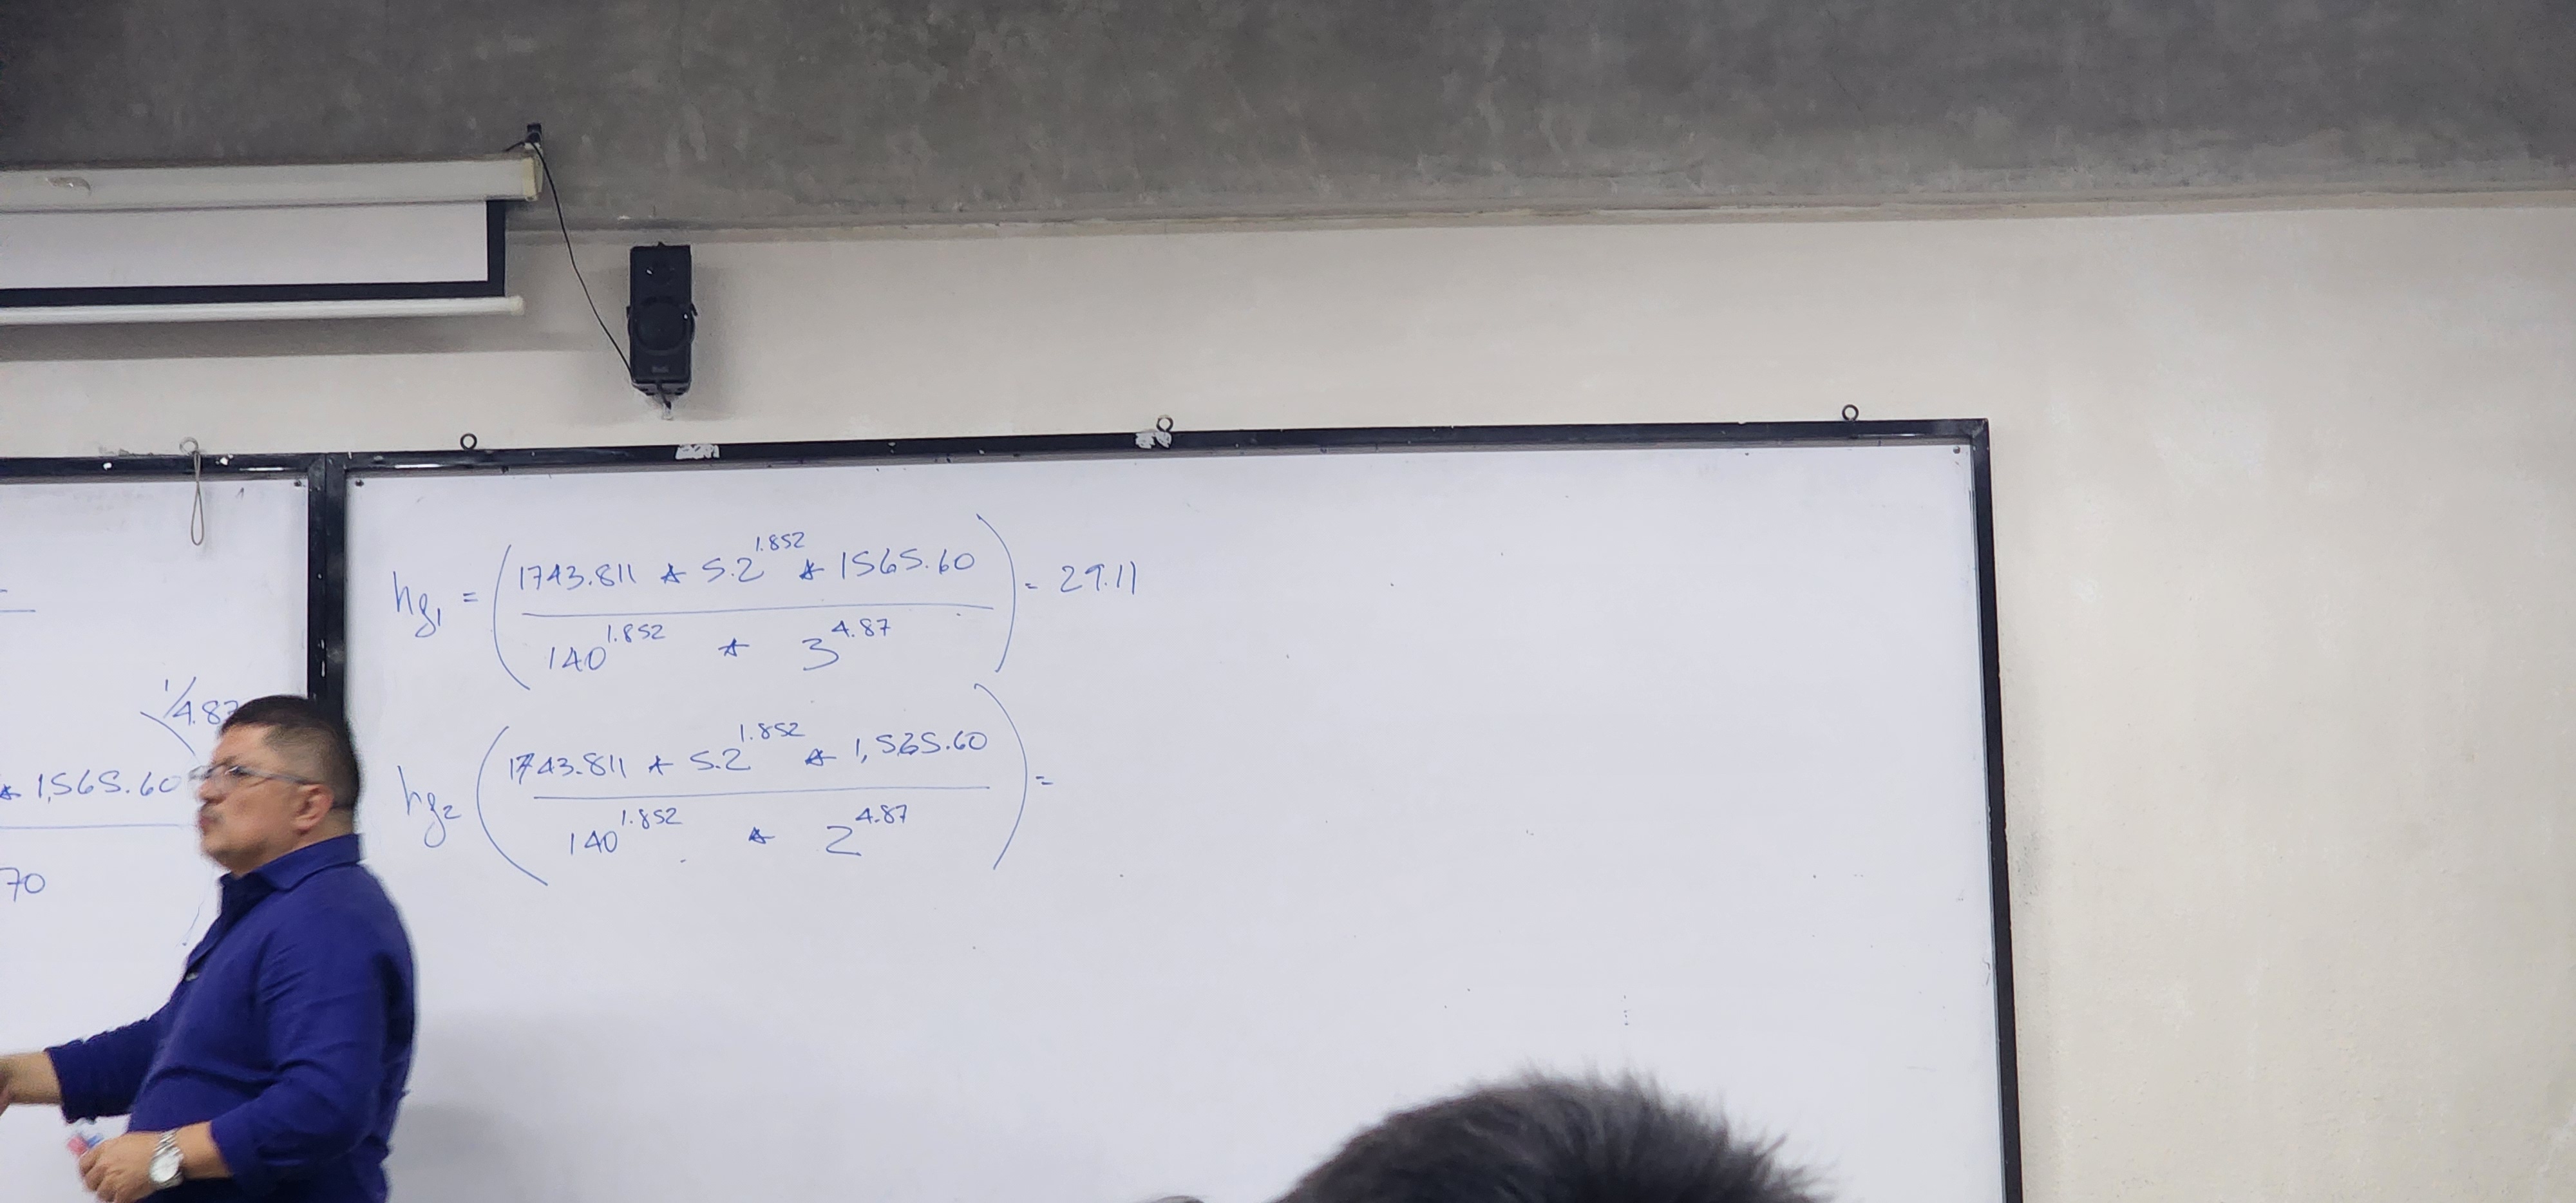 1/4.87
* 1,565.60
70
hf1 = (1743.811 * 5.2^1.852 * 1565.60) = 29.11
140^1.852 * 3^4.87
hf2 (1743.811 * 5.2^1.852 * 1,565.60) =
140^1.852 * 2^4.87